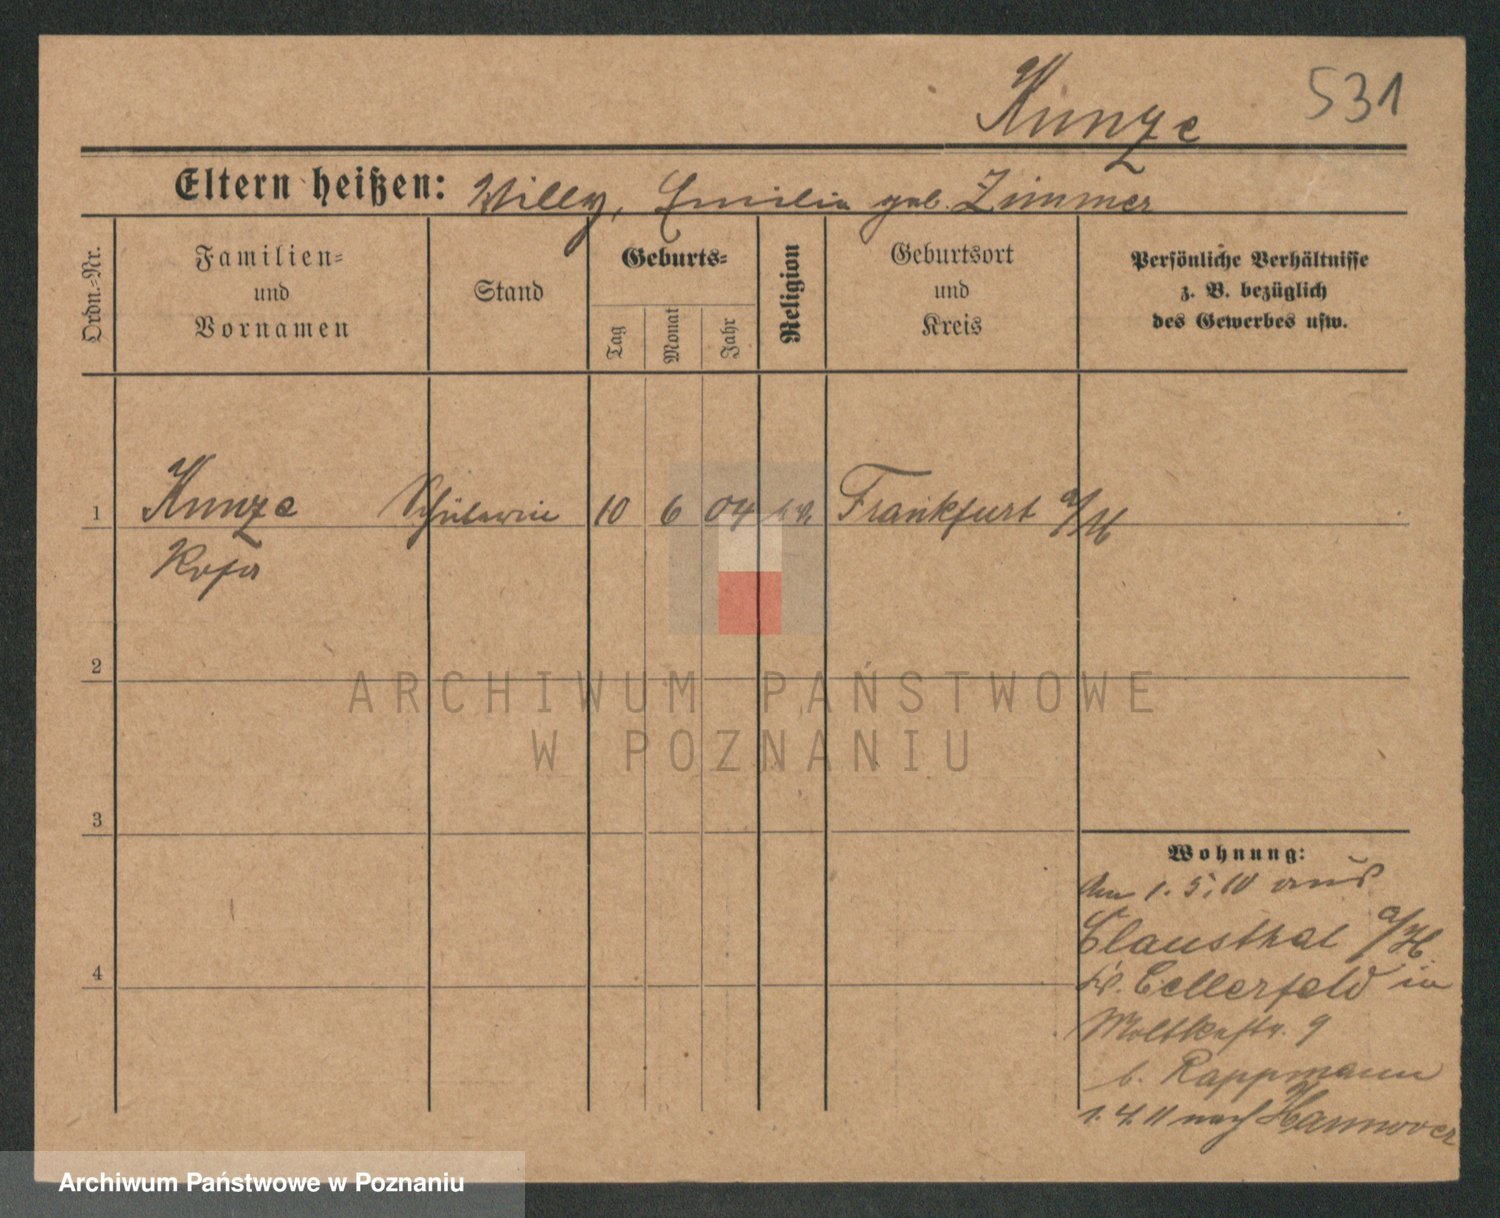 Kunze 531
Eltern heißen: Willy, Emilie geb. Zimmer
Ordn.-Nr.
Familien-
und
Vornamen
Stand
Geburts-
Tag
Monat
Jahr
Religion
Geburtsort
und
Kreis
Persönliche Verhältnisse
z. B. bezüglich
des Gewerbes usw.
1 Kunze Schülerin 10 6 04 ev. Frankfurt a/M
Rosa
2
3
4
Wohnung:
Am 1. 5. 10 aus
Clausthal a/H.
Kr. Cellerfeld in
Moltkestr. 9
b. Rappmann
1. 4. 11 nach Hannover
ARCHIWUM PAŃSTWOWE
W POZNANIU
Archiwum Państwowe w Poznaniu